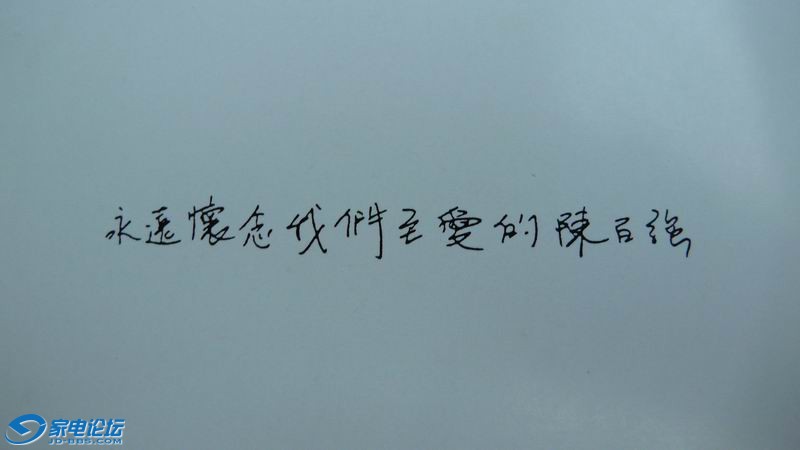 永遠懷念我們至愛的陳百強
家电论坛
JD-BBS.COM